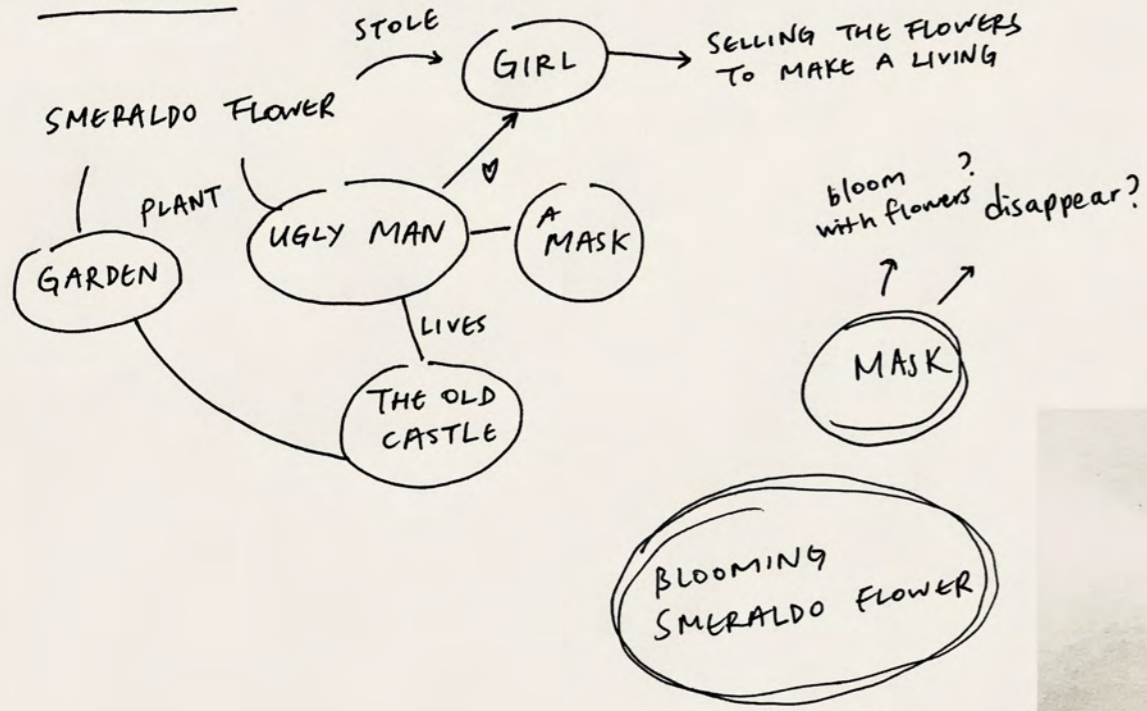 STOLE
GIRL
SELLING THE FLOWERS
TO MAKE A LIVING
SMERALDO FLOWER
PLANT
GARDEN
UGLY MAN
A
MASK
LIVES
THE OLD
CASTLE
bloom ?
with flowers
disappear?
MASK
BLOOMING
SMERALDO FLOWER